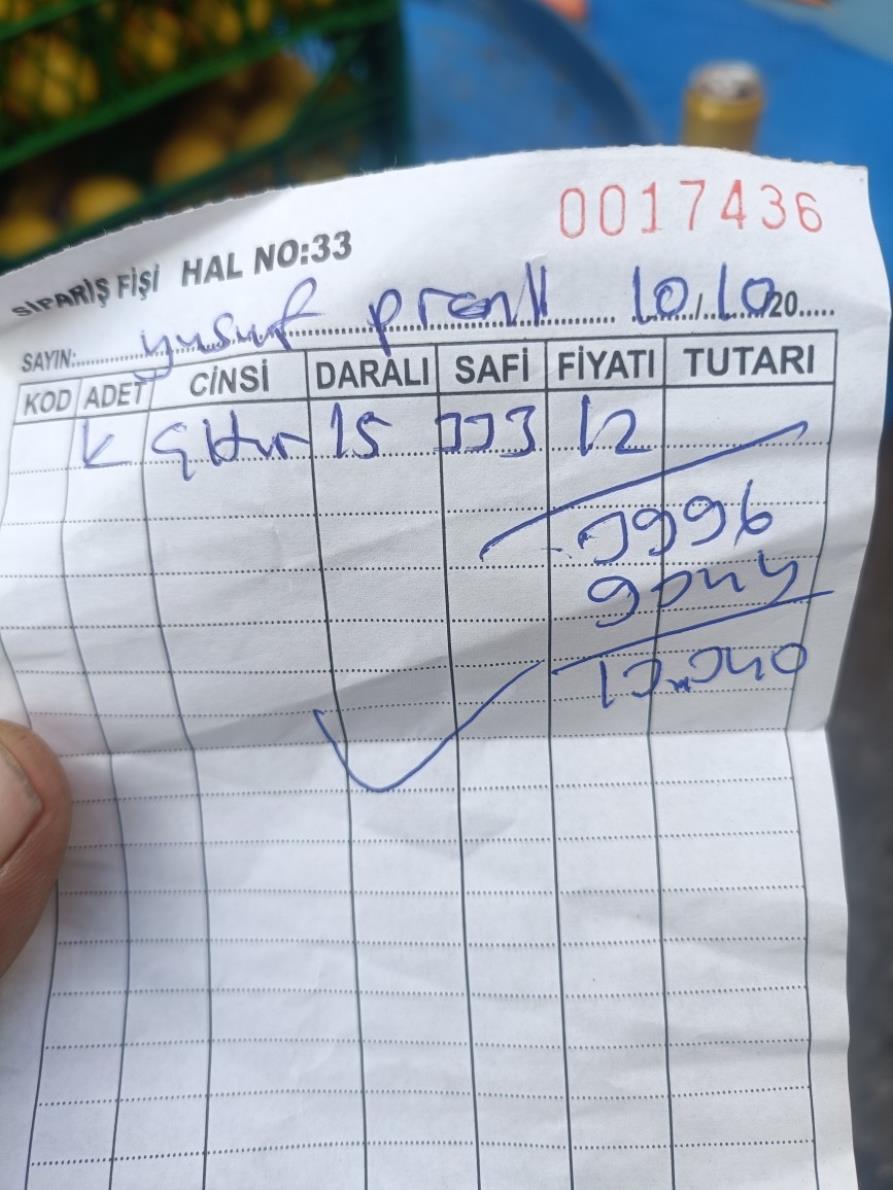 0017436
SİPARİŞ FİŞİ HAL NO:33
SAYIN: yusuf 10/10/20
KOD ADET CİNSİ DARALI SAFİ FİYATI TUTARI
k 15 333 12
3996
9044
13.040